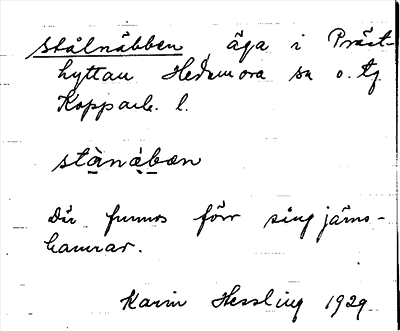 Stålnäbben, äga i Präst-
hyttan Hedemora sn o. tg
Kopparb. l.
stànàbæn
Där funnos förr sing järns-
hamrar.
Karin Hessling 1929